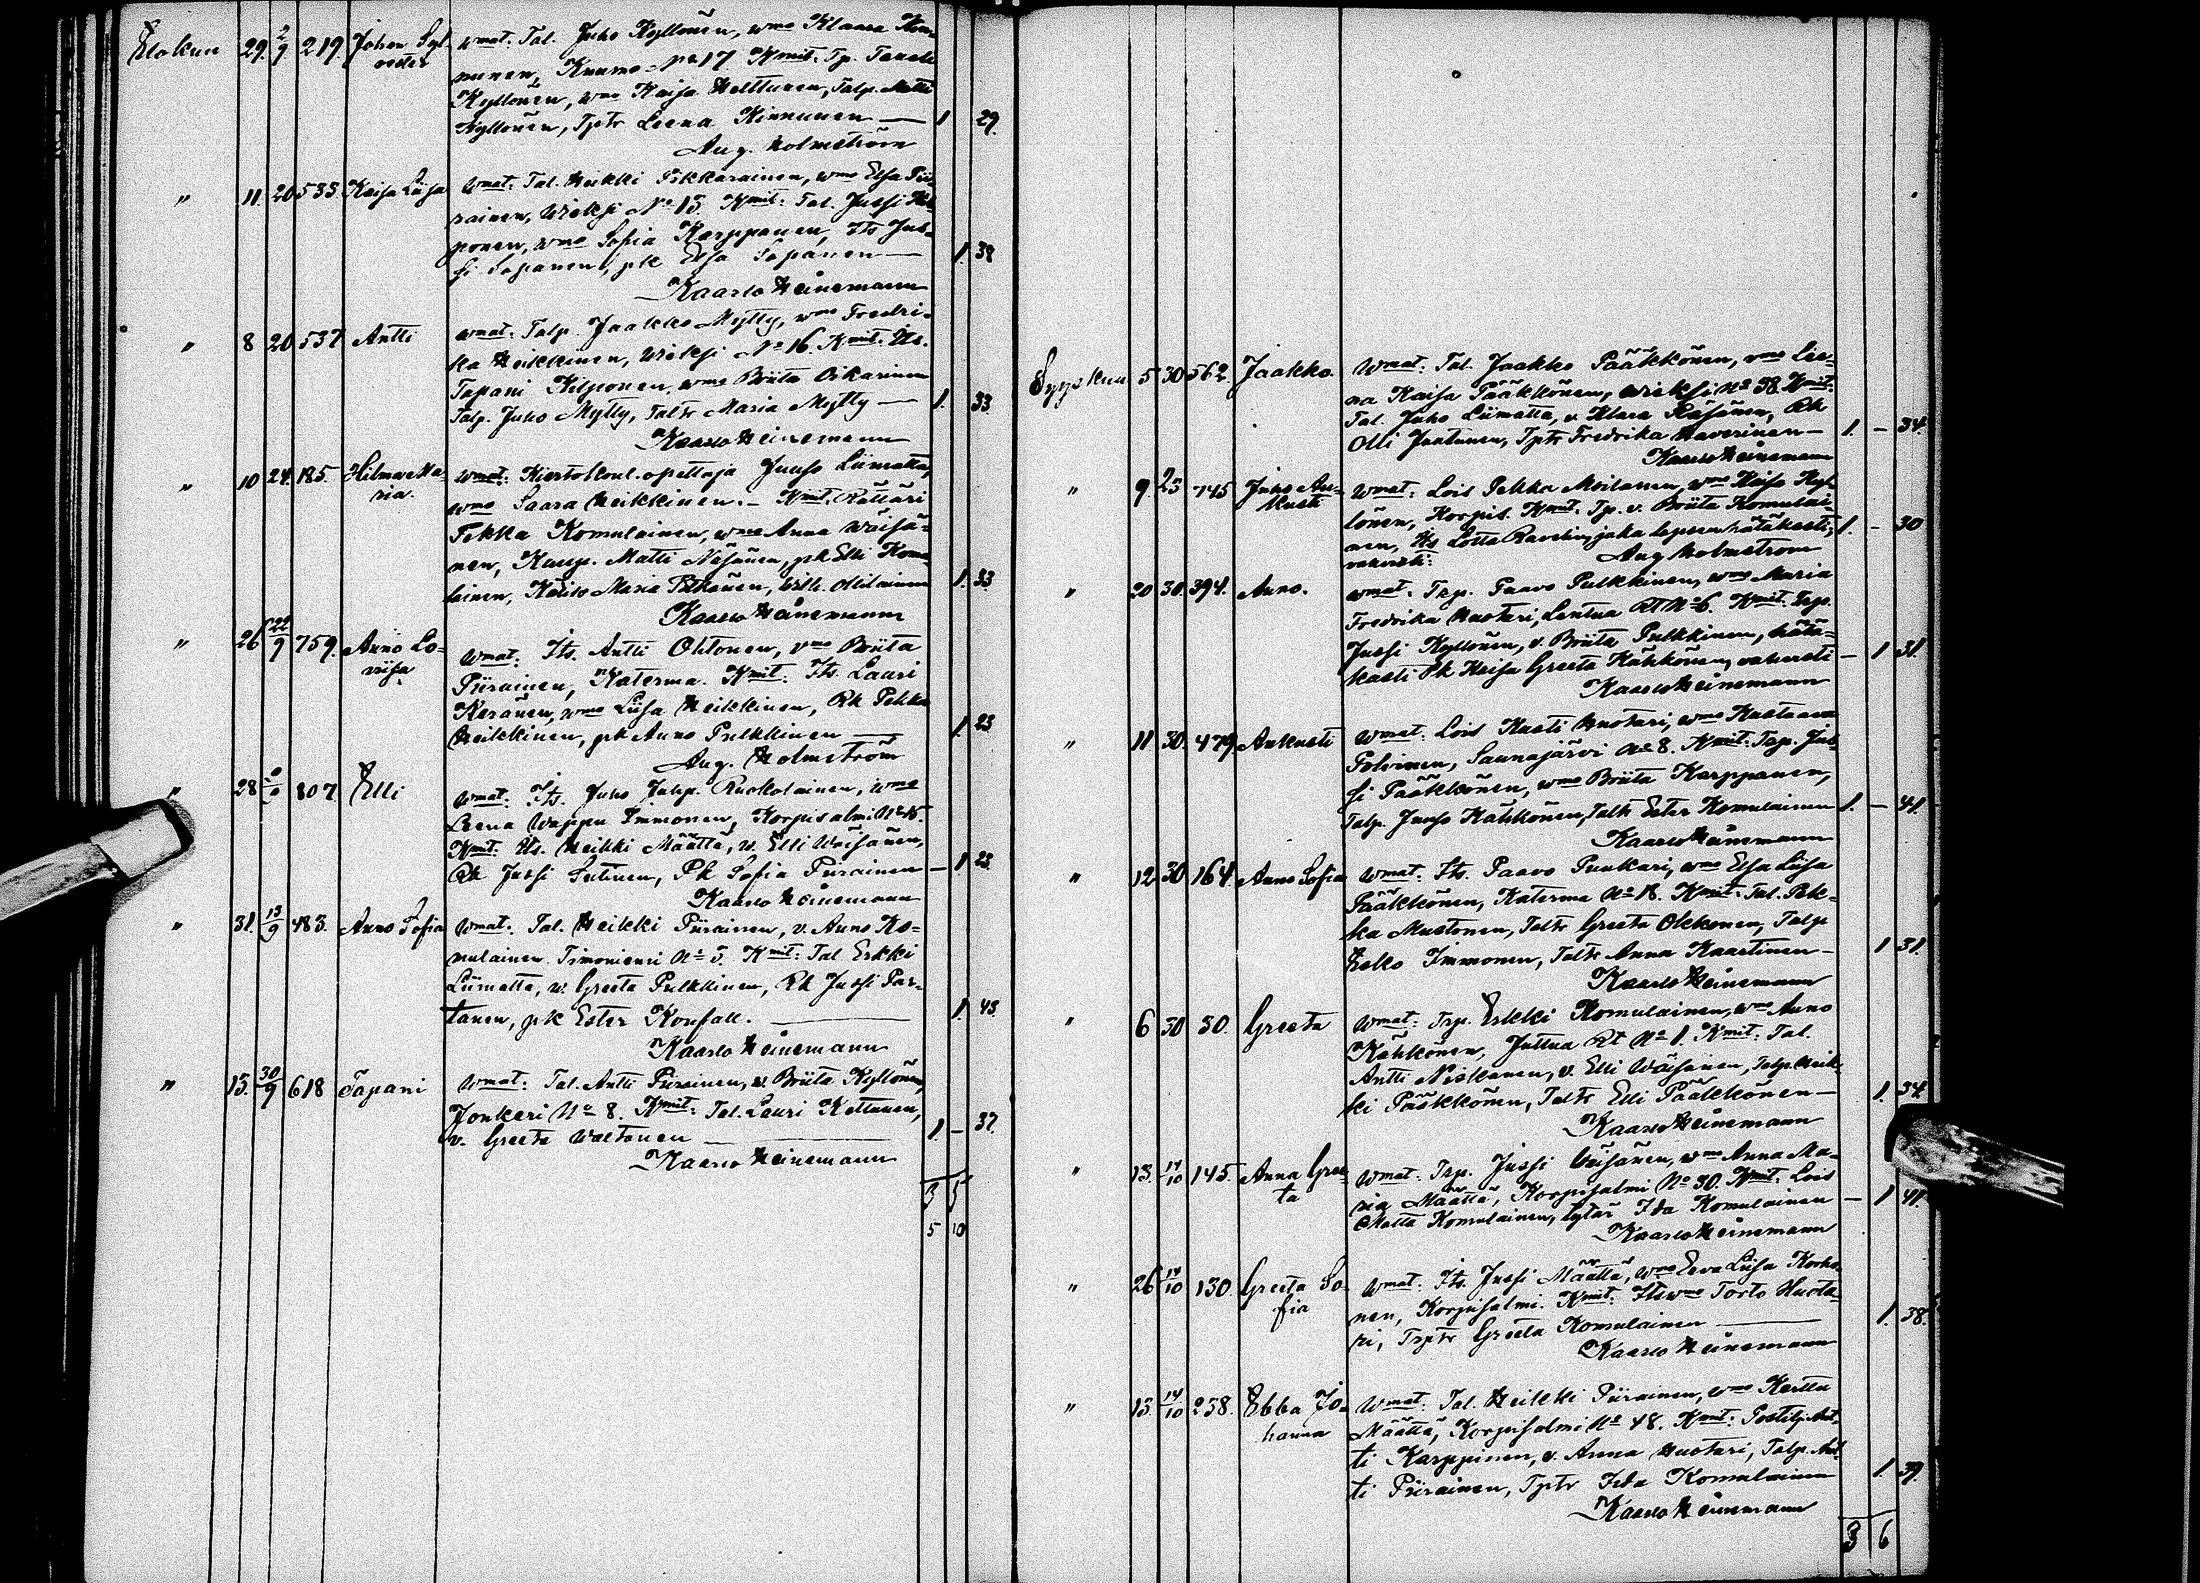 Elokun 29. 2/9. 219. Johan Syl vester Wmat: Tal. Juho Kyllönen, wmo Klaara Kin-
nunen, Kuumo - No 17 Kmit. Tp. Taneli
Kyllönen, wmo Kaisa Helttunen, Talp. Matti
Kyllönen, Tptr Leena Kinnunen — 1 29.
Aug. Holmström
" 11. 20 533. Kaisa Liisa Wmat: Tal. Heikki Pikkarainen, wmo Elsa Pii-
rainen, Wieksi No 15. Kmit: Tal. Jussi Kil-
ponen, wmo Sofia Karppanen, Its Jus-
si Sopanen, pk Elsa Sopanen — 1. 38
Kaarlo Heinemann
" 8 20 537 Antti Wmat: Talp. Jaakko Mylly, wmo Fredri-
ka Heikkinen, Wieksi No 16. Kmit: Its.
Tapani Kilponen, wmo Briita Oikarinen
Talp. Juho Mylly, Taltr Maria Mylly — 1. 33.
Kaarlo Heinemann
" 10 24. 185. Hilma Ma-
ria. Wmat: Kiertokoul. opettaja Juuso Liimatta,
wmo Saara Heikkinen. — Kmit. Räätäri
Pekka Komulainen, wmo Anna Wäisä-
nen, Kaup. Matti Näsänen, pk Elli Komu-
lainen, Maria Pitkänen, Wilh. Ollilainen 1. 33.
Kaarlo Heinemann
" 26 22/9 759. Anna Lo-
viisa Wmat: Its. Antti Ohtonen, vmo Briita
Piirainen, Katerma. Kmit: Its. Lauri
Keränen, wmo Liisa Heikkinen, Rk Pekka
Heikkinen, pk Anna Pulkkinen — 1. 23
Aug. Holmström
" 28 807 Elli Wmat: Its. Juho Juhp. Ruokolainen, wmo
Leena Wappu Immonen, Korpisalmi No
Kmit. Its. Heikki Määttä, w. Elli Wäisänen,
Rk Jussi Sutinen, Pk Sofia Piirainen — 1 23.
Kaarlo Heinemann
" 31. 13/9 483. Anna Sofia Wmat: Tal. Heikki Piirainen, v. Anna Ko-
mulainen Timoniemi No 5. Kmit: Tal Erkki
Liimatta, w. Greeta Pulkkinen, Rk Jussi Par-
tanen, pk Ester Konsall. — 1. 43
Kaarlo Heinemann
" 15. 30/9 618 Tapani Wmat: Tal. Antti Piirainen, v. Briita Kyllönen,
Jonkeri No 8. Kmit: Tal. Lauri Kettunen,
v. Greeta Waltonen — 1 — 37.
Kaarlo Heinemann
3 5
5 10
Syyskuu 5 30 562. Jaakko. Wmat: Tal. Jaakko Pääkkönen, vmo Lee-
na Kaisa Pääkkönen, Wieksi No 38. Kmit:
Tal. Juho Liimatta, v. Klara Räisänen, Rk
Olli Juntunen, Tptr Fredrika Haverinen — 1. — 34.
Kaarlo Heinemann
" 9. 23 745 Juho Au-
kusti Wmat: Lois Pekka Moilanen, wmo Kaisa Kyl-
lönen, Korpis. Kmit. Tp. v. Briita Komulai-
nen, Its Lotta joka lapsen hätäkasti, 1. — 30
vahvisti: Aug Holmström
" 20 30. 394. Anna. Wmat. Trp. Paavo Pulkkinen, wmo Maria
Fredrika Huotari, Lentua Rt No 6. Kmit: Trp.
Jussi Kyllönen, v. Briita Pulkkinen, hätä-
kasti Pk Kaisa Greeta Kähkönen, vahvisti — 1 31.
Kaarlo Heinemann
" 11 30. 479. Aukusti Wmat: Lois Kusti Huotari, wmo Kustaava
Polvinen, Saunajärvi No 8. Kmit: Trp. Jus-
si Pääkkönen, wmo Briita Karppanen,
Talp. Juuso Kähkönen, Taltr Ester Komulainen 1. — 41.
Kaarlo Heinemann
" 12 30 164. Anna Sofia Wmat: Its. Paavo Punkari, wmo Elsa Liisa
Pääkkönen, Katerma No 18. Kmit: Tal. Pek-
ka Mustonen, Taltr Greeta Okkonen, Talp
Esko Immonen, Taltr Anna Kaartinen — 1 31.
Kaarlo Heinemann
" 6 30 50. Greeta Wmat: Trp. Erkki Komulainen, wmo Anna
Kähkönen, Juttua Rt No 1. Kmit: Tal.
Antti Niskanen, v. Elli Wäisänen, Talp. Heik-
ki Pääkkönen, Taltr Elli Pääkkönen — 1. 34.
Kaarlo Heinemann
" 13. 14/10 145. Anna Gree-
ta Wmat: Trp. Jussi Väisänen, wmo Anna Ma-
ria Määttä, Korpisalmi No 30. Kmit. Lois
Matti Komulainen, tytär Ida Komulainen — 1 41.
Kaarlo Heinemann
" 26 14/10 130. Greeta So-
fia Wmat: Its. Jussi Määttä, wmo Eeva Liisa Korho-
nen, Korpisalmi. Kmit: Itswmo Torto Huota-
ri, Trptr Greeta Komulainen — 1. 38.
Kaarlo Heinemann
" 13. 14/10 258. Ebba Jo-
hanna Wmat: Tal. Heikki Piirainen, vmo Kerttu
Määttä, Korpisalmi No 48. Kmit: Postilj. Ant-
ti Karppinen, v. Anna Huotari, Talp. Ant-
ti Piirainen, Tptr Iida Komulainen 1. 39.
Kaarlo Heinemann
3 6